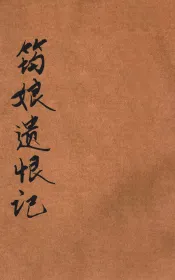 筠娘遗恨记